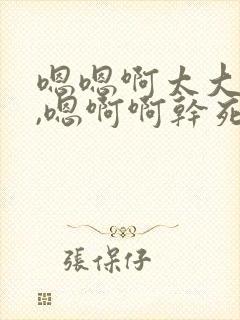 嗯嗯啊太大
,嗯啊啊幹死
張保仔